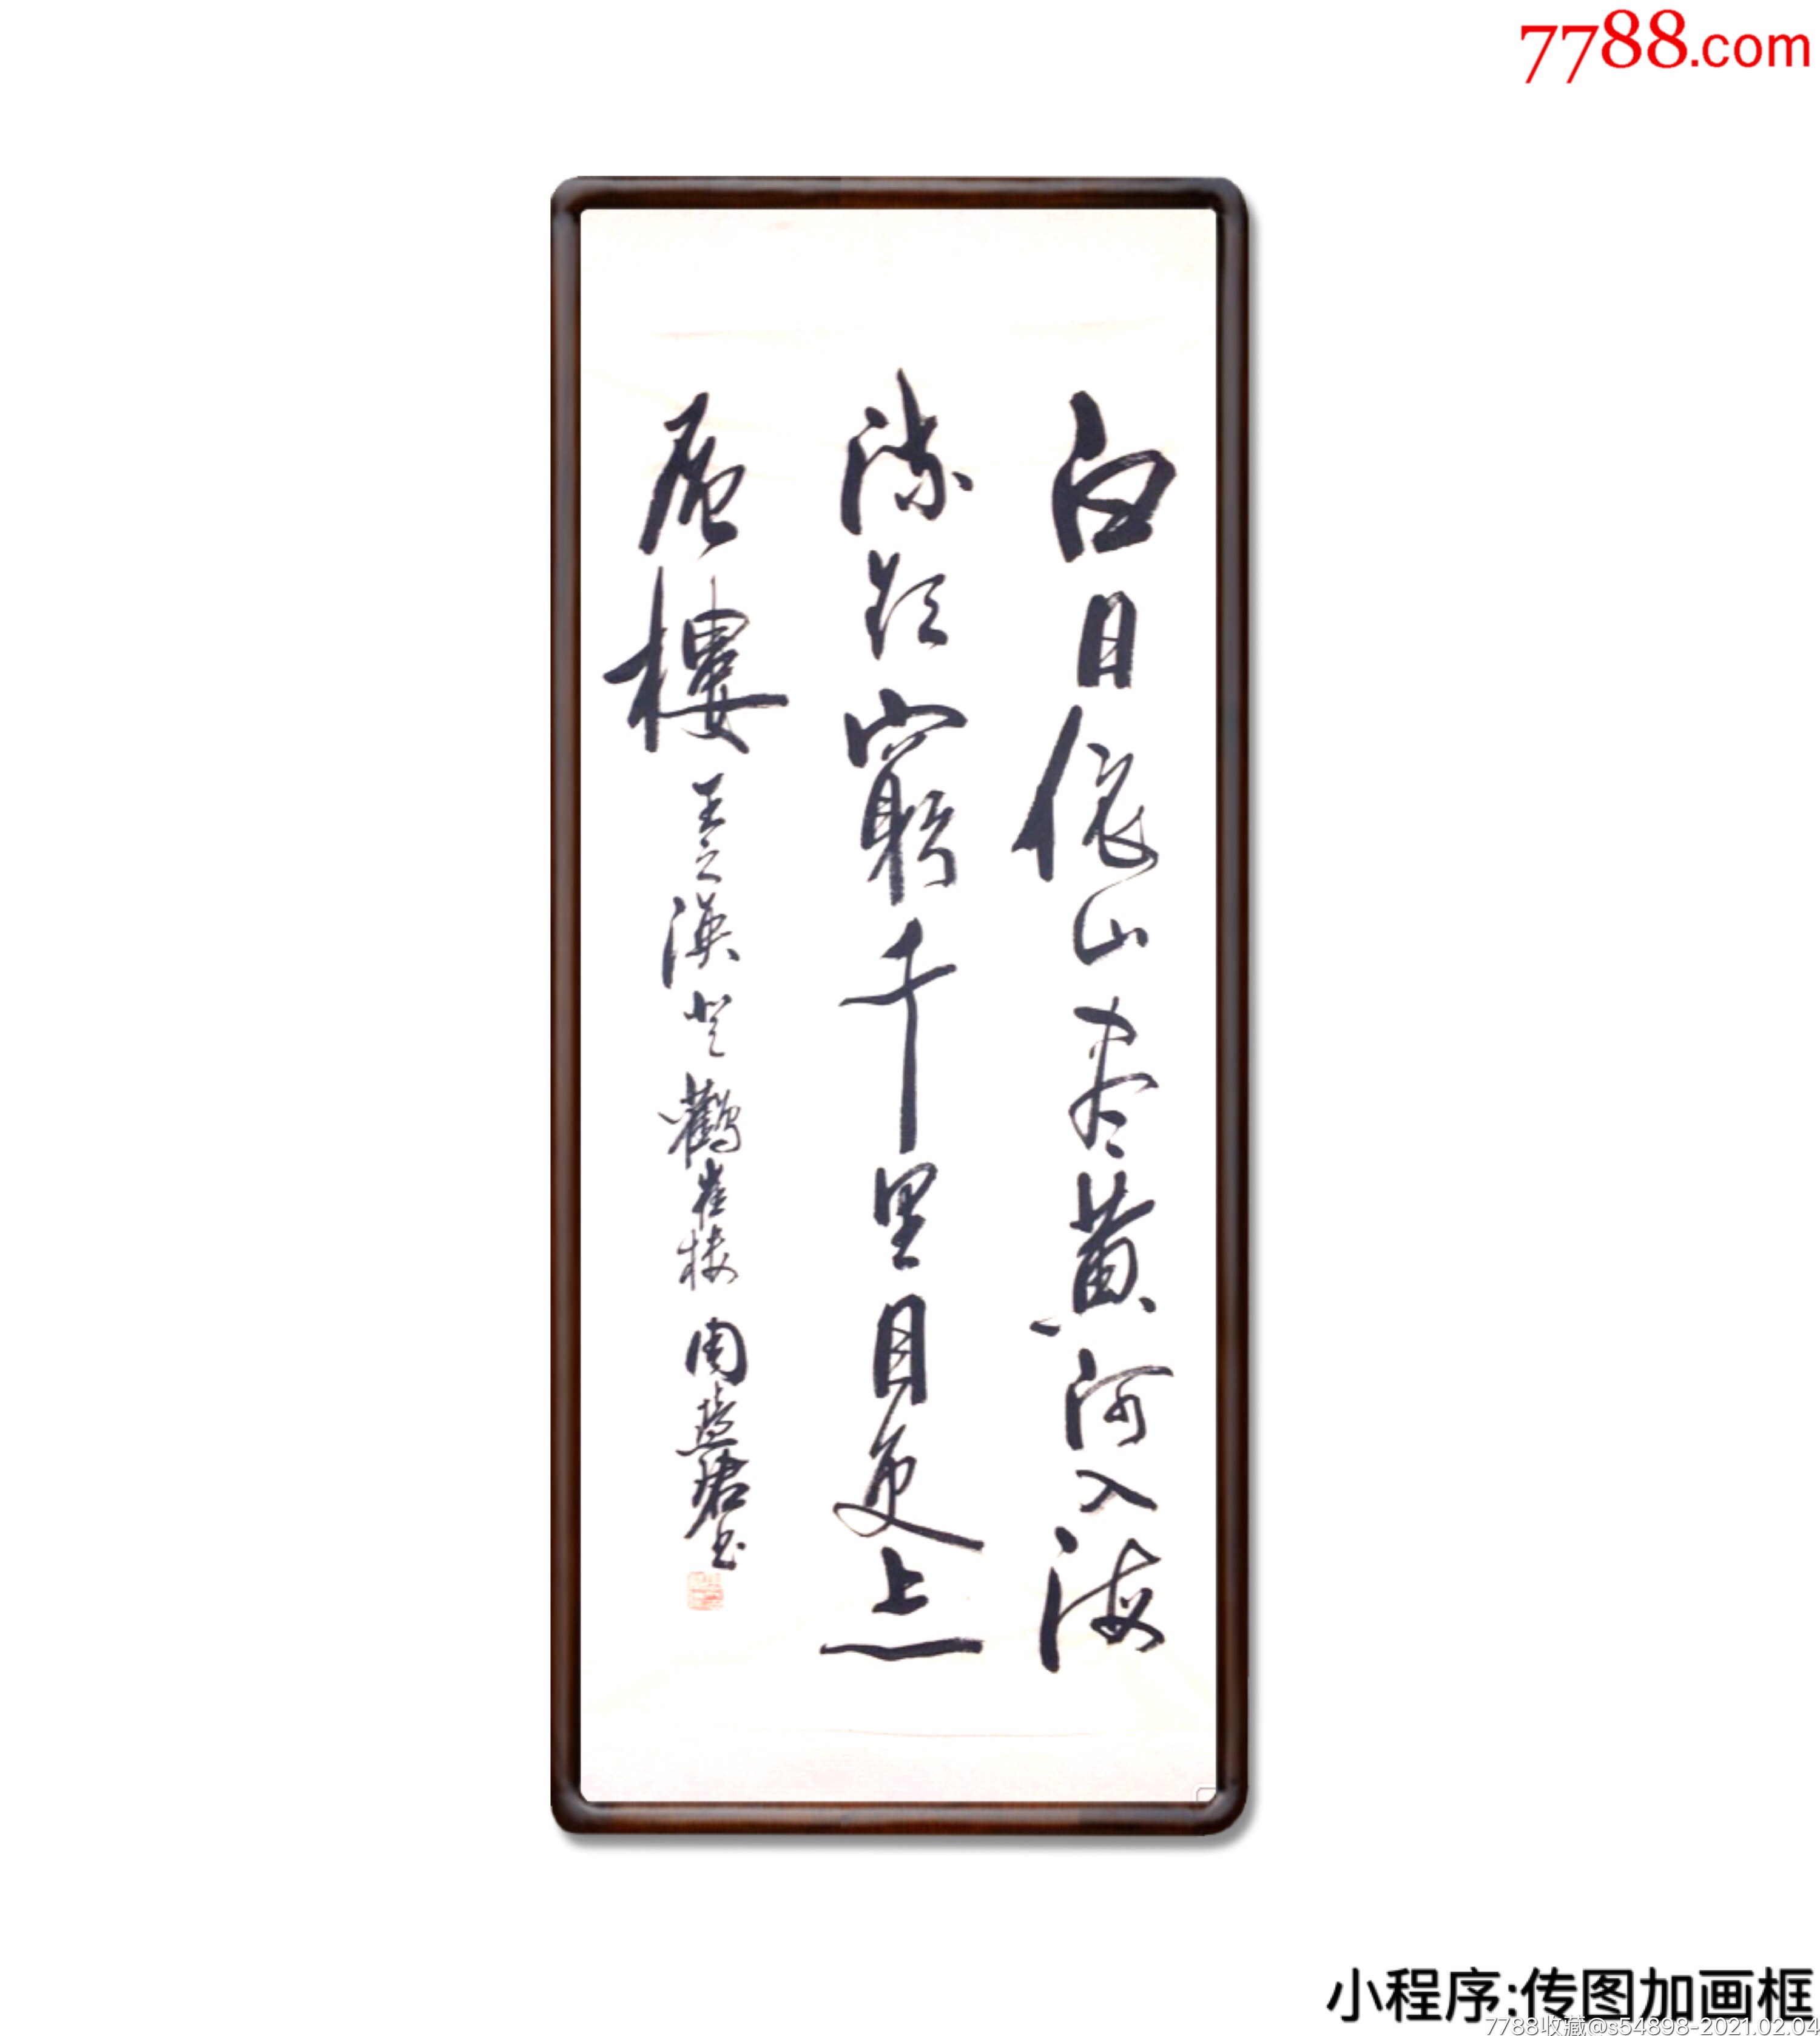 7788.com
白日依山尽黄河入海
流欲穷千里目更上一
层樓王之涣登鹳雀楼周慧珺书
小程序:传图加画框
7788收藏@s54898-2021.02.04